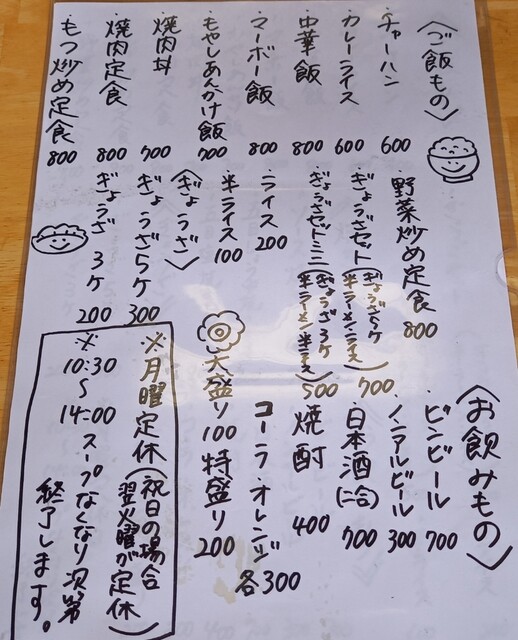 〈ご飯もの〉
・チャーハン 600
・カレーライス 600
・中華飯 800
・マーボー飯 800
・もやしあんかけ飯 700
・焼肉丼 700
・焼肉定食 800
・もつ炒め定食 800
・野菜炒め定食 800
・ぎょうざセット(ぎょうざ5ケ 半ラーメン・ライス) 700
・ぎょうざセットミニ(ぎょうざ3ケ 半ラーメン・半ライス) 500
・ライス 200
・半ライス 100
〈ぎょうざ〉
・ぎょうざ5ケ 300
・ぎょうざ3ケ 200
大盛り100 特盛り200
〈お飲みもの〉
・ビンビール 700
・ノンアルビール 300
・日本酒(二合) 700
・焼酎 400
・コーラ・オレンジ 各300
※月曜定休(祝日の場合翌火曜が定休)
※10:30〜14:00
スープなくなり次第
終了します。